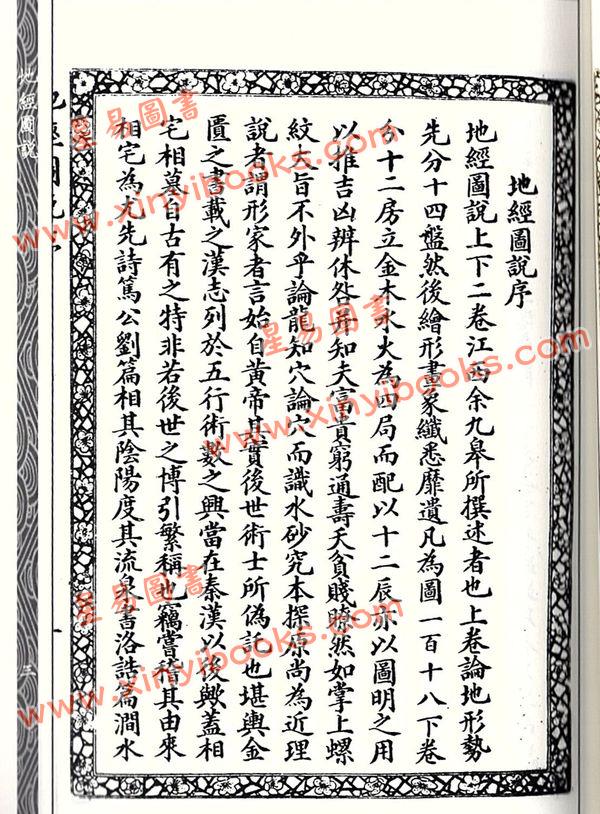 地經圖說序
地經圖說上下二卷江西余九皋所撰述者也上卷論地形勢
先分十四盤然後繪形畫象纖悉靡遺凡為圖一百十八下卷
分十二房立金木水火為四局而配以十二辰亦以圖明之用
以推吉凶辨休咎并知夫富貴窮通壽夭貧賤瞭然如掌上螺
紋大旨不外乎論龍知穴論穴而識水砂究本探原尚為近理
說者謂形家者言始自黃帝其實後世術士所偽託也堪輿金
匱之書載之漢志列於五行術數之興當在秦漢以後歟蓋相
宅相墓自古有之特非若後世之博引繁稱也竊嘗稽其由來
相宅為尤先詩篤公劉篇相其陰陽度其流泉書洛誥篇澗水
地經圖說
三
一
星易圖書
www.xinyibooks.com
星易圖書
www.xinyibooks.com
星易圖書
www.xinyibooks.com